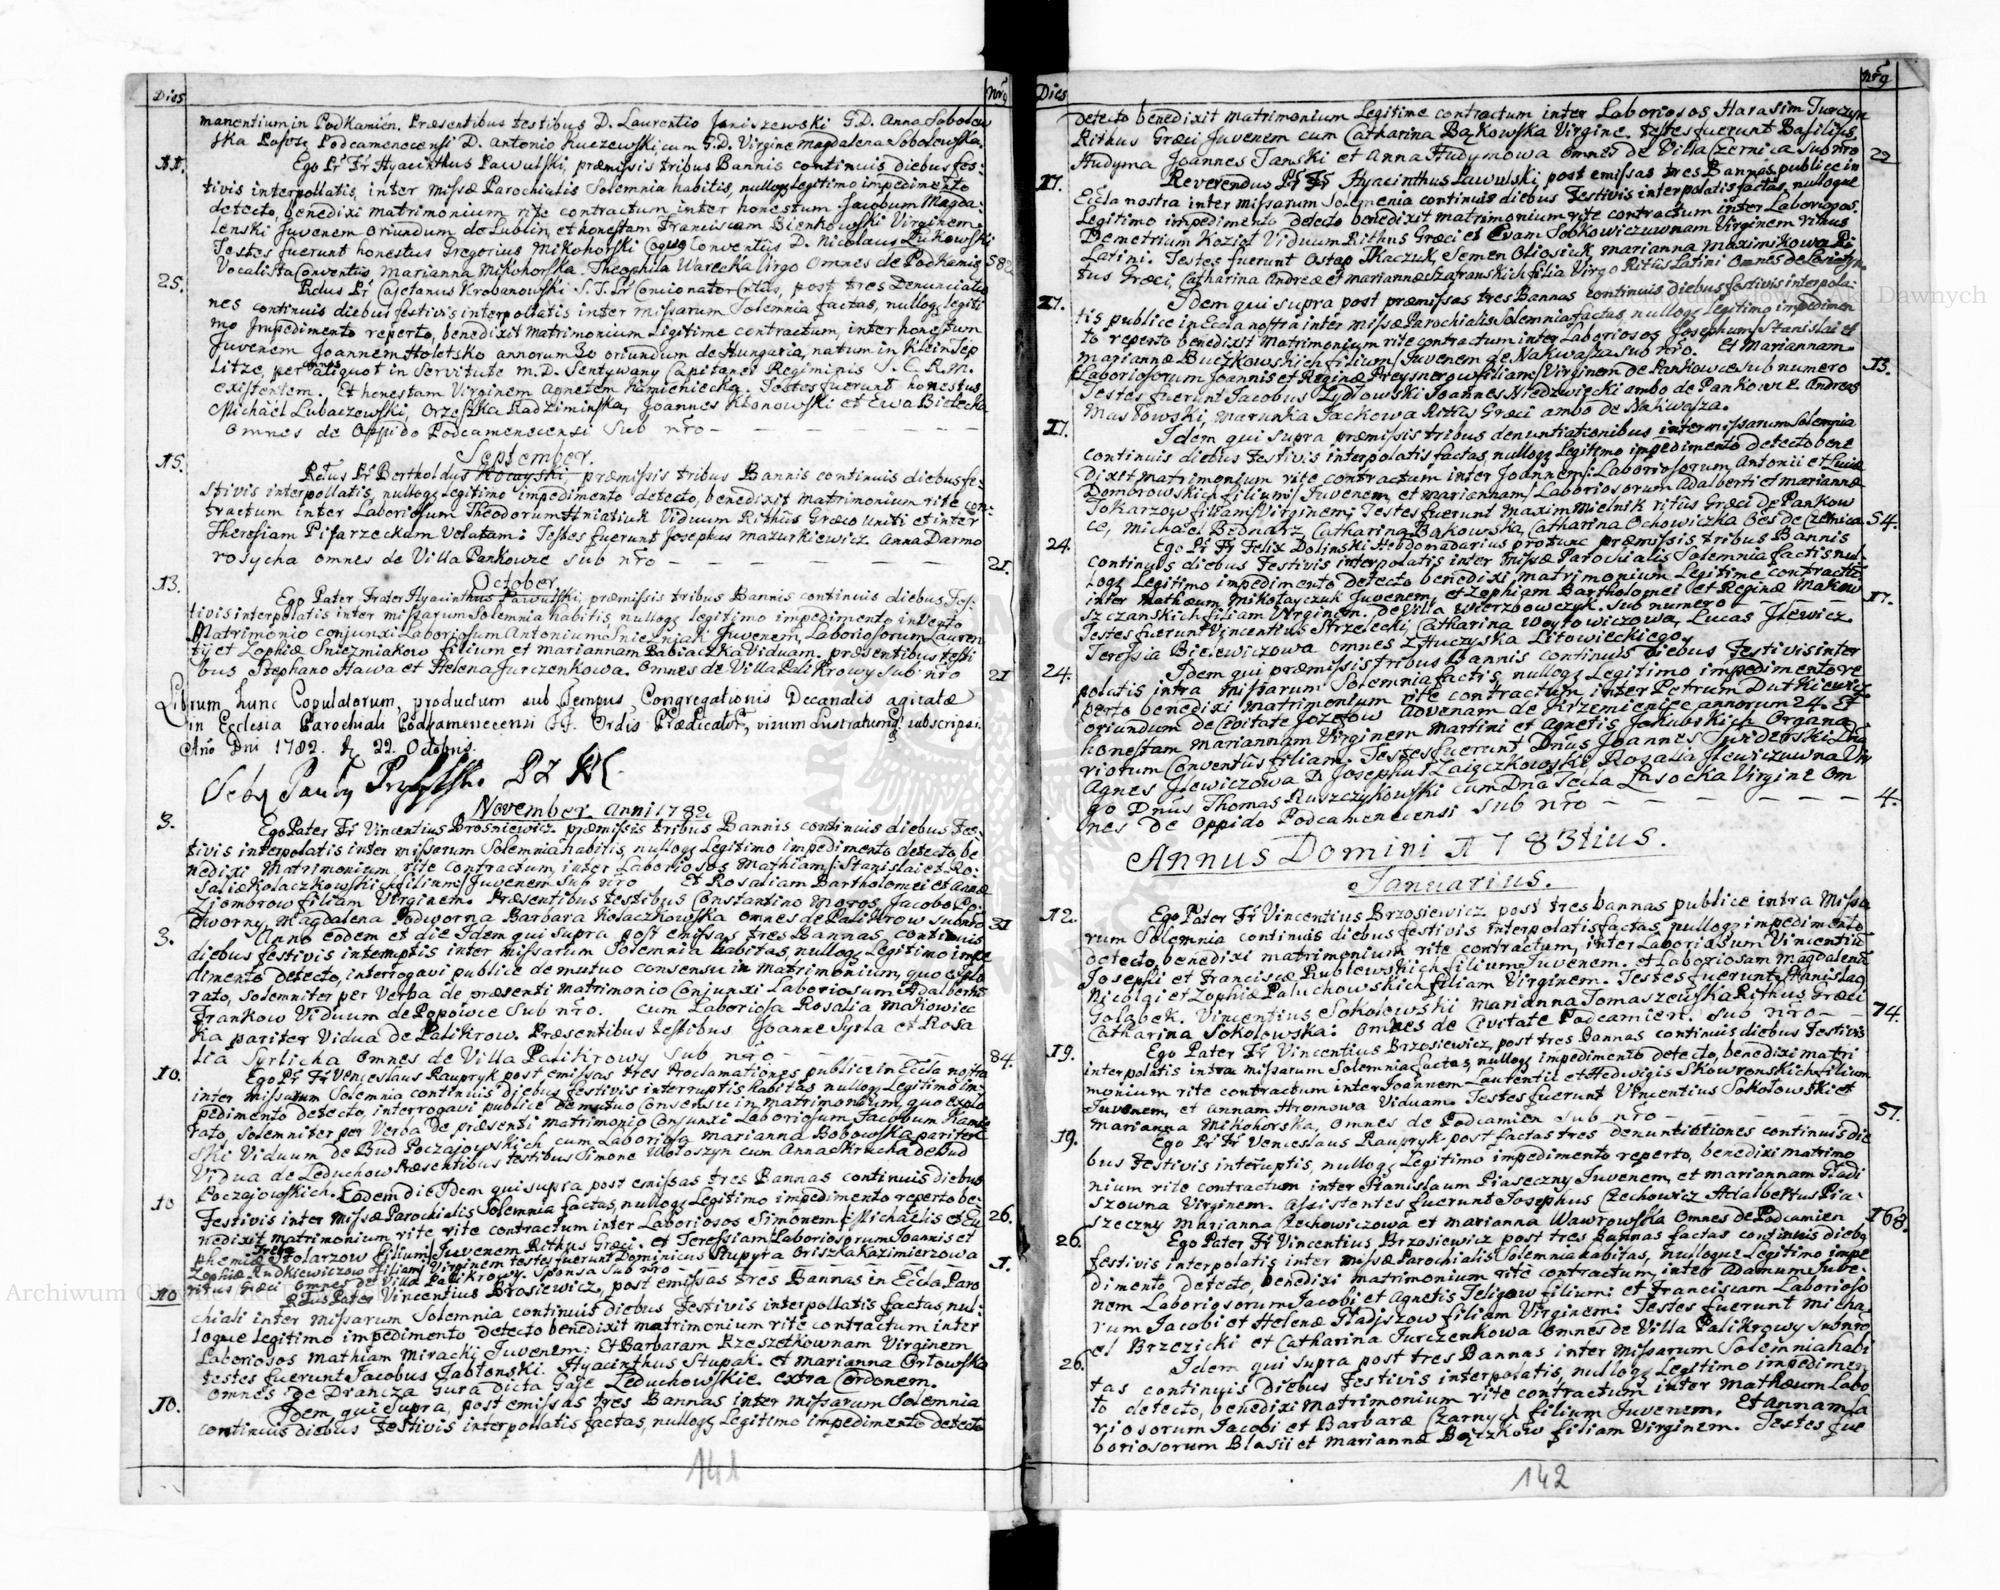 Dies
Nrg
manentium in Podkamień. Præsentibus testibus D. Laurentio Janiszewski G.D. Anna Sobolew
ska D. Antonio Kuczewski cum G.D. Virgine Magdalena Sobolewska.
11. Ego Pr Fr Hyacinthus Pawulski, præmissis tribus Bannis continuis diebus fes:
tivis interpollatis, inter missæ Parochialis Solemnia habitis, nulloq Legitimo impedimento
detecto, benedixi matrimonium rite contractum inter honestum Jacobum Magda:
lenski Juvenem oriundum de Lublin, et honestam Franciscam Bienkowski Virginem.
Testes fuerunt honestus Gregorius Mikohorski Coquq Conventûs D. Nicolaus Zukowski
Vocalista Conventûs Marianna Mikohorska. Theophila Warecka Virgo Omnes de Podkamie 582
25. Rdus Pr Cajetanus Krobanowski S.T. Lr Concionator post tres Denunciatio
nes continuis diebus festivis interpollatis inter missarum Solemnia factas, nulloq legiti
mo Impedimento reperto, benedixit Matrimonium Legitime contractum, inter honestum
Juvenem Joannem Holetsko annorum 30 oriundum de Hungaria, natum in Klein Sep
Litze, per annos aliquot in Servitute M.D. Sentywany Capitanei Regiminis S.C.R.M.
existentem. Et honestam Virginem Agnetem Kamieniecka. Testes fuerunt honestus
Michael Lubaczewski, Orzeszka Radziminska, Joannes Klonowski et Ewa Bielecka
omnes de Oppido Podcamenecensi Sub nro
September.
15. Rdus Pr Bertholdus Kotayski, præmissis tribus Bannis continuis diebus fe:
stivis interpollatis, nulloq Legitimo impedimento detecto, benedixit matrimonium rite con:
tractum inter Laboriosum Theodorum Hniatiuk Viduum Rithûs Græco uniti et inter
Theresiam Pisarzeckum Velatam: Testes fuerunt Josephus Mazurkiewicz Anna Darmo
rosycha omnes de Villa Pankowce sub nro 21.
October
13. Ego Pater Frater Hyacinthus Pawulski, præmissis tribus Bannis continuis diebus Fes:
tivis interpolatis inter missarum Solemnia habitis, nulloq legitimo impedimento invento
Matrimonio conjunxi Laboriosum Antonium Snieżniak Juvenem, Laboriosorum Lauren
tij et Zophiæ Sniezniakow filium et mariannam Babiaczka Viduam. præsentibus testi
bus Stephano Hawa et Helena Jurczenkowa. Omnes de Villa Palikrowy Sub nro 21
Librum hunc Copulatorum, productum sub Tempus Congregationis Decanalis agitatæ
in Ecclesia Parochiali Podkamenecensi Ordis Prædicator, visum Lustratumq subscripsi.
Ano Dni 1782. d. 22. Octobris.
November anni 1782
3. Ego Pater Fr Vincentius Brosniewicz præmissis tribus Bannis continuis diebus Fes:
tivis interpolatis inter missarum Solemnia habitis, nulloq Legitimo impedimento detecto be
nedixi Matrimonium rite contractum, inter Laboriosos Mathiam Stanislai et Ro:
saliæ Kolaczkowskich filium Juvenem Sub nro et Rosaliam Bartholomei et Annæ
Ziombrow filiam Virginem. Præsentibus testibus Constantino Moros Jacobo Po:
dworny Magdalena Podworna Barbara Kolaczkowska omnes de Palikrow sub nro 21
3. Anno eodem et die Idem qui supra post emissas tres Bannas, continuis
diebus festivis intemptis inter missarum Solemnia habitas, nulloq Legitimo impe
dimento detecto, interrogavi publice de mutuo consensu in matrimonium, quo explo
rato, Solemniter per Verba de præsenti matrimonio Conjunxi Laboriosum Adalbertum
Frankow Viduum de Popowce Sub nro. cum Laboriosa Rosalia Makowiec
ka pariter Vidua de Palikrow. Præsentibus testibus Joanne Syrla et Rosa
lia Syrlicha omnes de Villa Palikrowy sub nro 84.
10. Ego Pr Fr Venceslaus Raupryk post emissas tres Proclamationes publice in Eccla nostra
inter missarum Solemnia continuis diebus festivis interruptis habitas nulloq Legitimo im:
pedimento detecto, interrogavi publice de mutuo Consensu in matrimonium, quo explo
rato, Solemniter per Verba de præsenti matrimonio Conjunxi Laboriosum Jacobum Kamin
ski Viduum de Bud Poczajowskich cum Laboriosa Marianna Bobowska pariter
Vidua de Leduchow Præsentibus testibus Simone Woloszyn cum Anna Skrucha de Bud
Poczajowskich.
10 Eodem die Idem qui supra post emissas tres Bannas continuis diebus
Festivis inter missæ Parochialis Solemnia factas, nulloq Legitimo impedimento reperto be:
nedixit matrimonium rite contractum inter Laboriosos Simonem Michaelis et Eu 26.
phemiæ Stolarzow filium Juvenem Rithus Græci. et Teressiam Laboriosorum Joannis et
Zophiæ Rudkiewiczow filiam Virginem testes fuerunt Dominicus Stupyra Oriszka Kazimierzowa
ritus Græci omnes de Villa Palikrowy. Sponsa Sub nro 1.
10 Rdus Pater Vincentius Brosiewicz, post emissas tres Bannas in Eccla Paro
chiali inter missarum Solemnia continuis diebus festivis interpollatis factas, nul:
loque legitimo impedimento detecto benedixit matrimonium ritè contractum inter
Laboriosos Mathiam Miracki Juvenem: Et Barbaram Rzeszetkownam Virginem
testes fuerunt Jacobus Jablonski. Hyacinthus Stupak. et marianna Orlowska
omnes de Drancza Gura dicta Gaje Leduchowskie. extra Cordonem.
10. Idem qui supra, post emissas tres Bannas inter missarum Solemnia
continuis diebus Festivis interpollatis factas, nulloq Legitimo impedimento detecto
141
Dies
Nrg
detecto benedixit matrimonium Legitime contractum inter Laboriosos Harasim Turczyn
Rithus Græci Juvenem cum Catharina Bąkowska Virgine. Testes fuerunt Basilius
Hudyma Joannes Janski et Anna Hudymowa omnes de Villa Czernica Sub nro 22
17. Reverendus Pr Fr Hyacinthus Pawulski, post emissas tres Bannas publice in
Eccla nostra inter missarum Solemnia continuis diebus Festivis interpolatis factas, nulloque
Legitimo impedimento detecto benedixit matrimonium rite contractum inter Laboriosos.
Demetrium Koziel Viduum Rithus Græci et Evam Sobkowiczuwnam Virginem rithus
Latini. Testes fuerunt Ostap Tkaczuk, Semen Oliosiuk, marianna Maximikowa Ri
tus Græci, Catharina Andreæ et mariannæ Szafranskich filia Virgo Ritûs Latini
17. Idem qui supra post præmissas tres Bannas continuis diebus festivis interpola:
tis publice in Eccla nostra inter missæ Parochialis Solemnia factas, nulloq Legitimo impedimen
to reperto benedixit Matrimonium rite contractum inter Laboriosos Josephum Stanislai et
mariannæ Buczkowskich filium Juvenem de Nakwasza sub nro. Et Mariannam
Laboriosorum Joannis et Reginæ Preysnerow filiam Virginem de Pankowce sub numero 13.
Testes fuerunt Jacobus Zydlowski Joannes Niedzwiecki ambo de Pankowce. Andreas
Maslowski, Marunka Jackewa Ritûs Græci ambo de Nakwasza.
17. Idem qui supra præmissis tribus denuntiationibus inter missarum Solemnia
continuis diebus Festivis interpolatis factas, nulloq Legitimo impedimento detecto bene
dixit matrimonium rite contractum inter Joannem Laboriosorum Antonii et Luciæ
Dombrowskich filium Juvenem, et mariannam Laboriosorum Adalberti et mariannæ
Tokarzow filiam Virginem; Testes fuerunt Maxim Mielnik ritûs Græci de Pankow
ce, Michael Bednarz Catharina Bąkowska, Catharina Ochowiczka de Czernica 54.
24. Ego Pr Fr Felix Dolinski Hebdomadarius protunc præmissis tribus Bannis
continuis diebus Festivis interpolatis inter missæ Parochialis Solemnia factis nul:
loq Legitimo impedimento detecto benedixi matrimonium Legitime contractū
inter Mathæum Mikolayczuk Juvenem, et Zophiam Bartholomei et Reginæ Makow 17.
szczanskich filiam Virginem. de Villa Wierzbowczyk. Sub numero
Testes fuerunt Vincentius Strzelecki, Catharina Woytowiczowa, Lucas Ilewicz.
Teressia Bielewiczowa omnes z Huczyska Litowieckiego,
24. Idem qui præmissis tribus Bannis continuis diebus Festivis inter
polatis intra missarum Solemnia factis, nulloq Legitimo impedimento re
perto benedixi matrimonium rite contractum inter Petrum Dutkiewicz
oriundum de Civitate Jozefow Advenam de Krzemieniec annorum 24. Et
honestam Mariannam Virginem Martini et Agnetis Janubskich Organa
riorum Conventûs filiam. Testes fuerunt Dnus Joannes Swiderski Dna
Agnes Ilewiczowa D. Josephus Zaięczkowski, Rosalia Ilewiczuwna Vir
go Dnus Thomas Ruszczykowski cum Dna Tecla Lasocka Virgine Om
nes de Oppido Podcamenecensi sub nro 4.
Annus Domini 1783tius.
Januarius.
12. Ego Pater Fr Vincentius Brzosiewicz post tres bannas publice intra Missa
rum Solemnia continuis diebus festivis interpolatis factas, nulloq impedimento
detecto, benedixi matrimonium rite contractum, inter Laboriosum Vincentiū
Josephi et Franciscæ Rublewskich filium Juvenem. et Laboriosam Magdalenā
Nicolai et Zophiæ Paluchowskich filiam Virginem. Testes fuerunt Stanislaq
Goląbek. Vincentius Sokolowski Marianna Tomaszewska Rithus Græci
Catharina Sokolowska: omnes de Civitate Podcamien. sub nro 74.
19. Ego Pater Fr Vincentius Brzosiewicz, post tres Bannas continuis diebus Festivis
interpolatis intra missarum Solemnia factas, nulloq impedimento detecto, benedixi matri
monium rite contractum inter Joannem Laurentii et Hedwigis Skowronskich filium
Juvenem, et Annam Hromowa Viduam. Testes fuerunt Vincentius Sokolowski et
Marianna Mikohorska, omnes de Podcamien sub nro 51.
19. Ego Pr Fr Venceslaus Raupryk post factas tres denuntiationes continuis die
bus Festivis interuptis, nulloq Legitimo impedimento reperto, benedixi matrimo
nium rite contractum inter Stanislaum Piaseczny Juvenem, et mariannam Gladi
szowna Virginem. Assistentes fuerunt Josephus Czechowicz Adalbertus Pia:
szeczny Marianna Czechowiczowa et marianna Wawrowska omnes de Podcamien 168.
26. Ego Pater Fr Vincentius Brzosiewicz post tres Bannas factas continuis diebq
festivis interpolatis inter missæ Parochialis Solemnia habitas, nulloque Legitimo impe
dimento detecto, benedixi matrimonium rite contractum, inter Adamum Juve:
nem Laboriosorum Jacobi et Agnetis Teligow filium: et Franciscam Laborioso
rum Jacobi et Helenæ Hladjszow filiam Virginem: Testes fuerunt Micha
el Brzezicki et Catharina Jurczenkowa omnes de Villa Palikrowy sub nro
26. Idem qui supra post tres Bannas inter missarum Solemnia habi
tas continuis diebus Festivis interpolatis, nulloq Legitimo impedimen
to detecto, benedixi matrimonium rite contractum inter Mathæum Labo
riosorum Jacobi et Barbaræ Czarnych filium Juvenem. Et Annam La
boriosorum Blasii et mariannæ Bączkow filiam Virginem. Testes fue
142